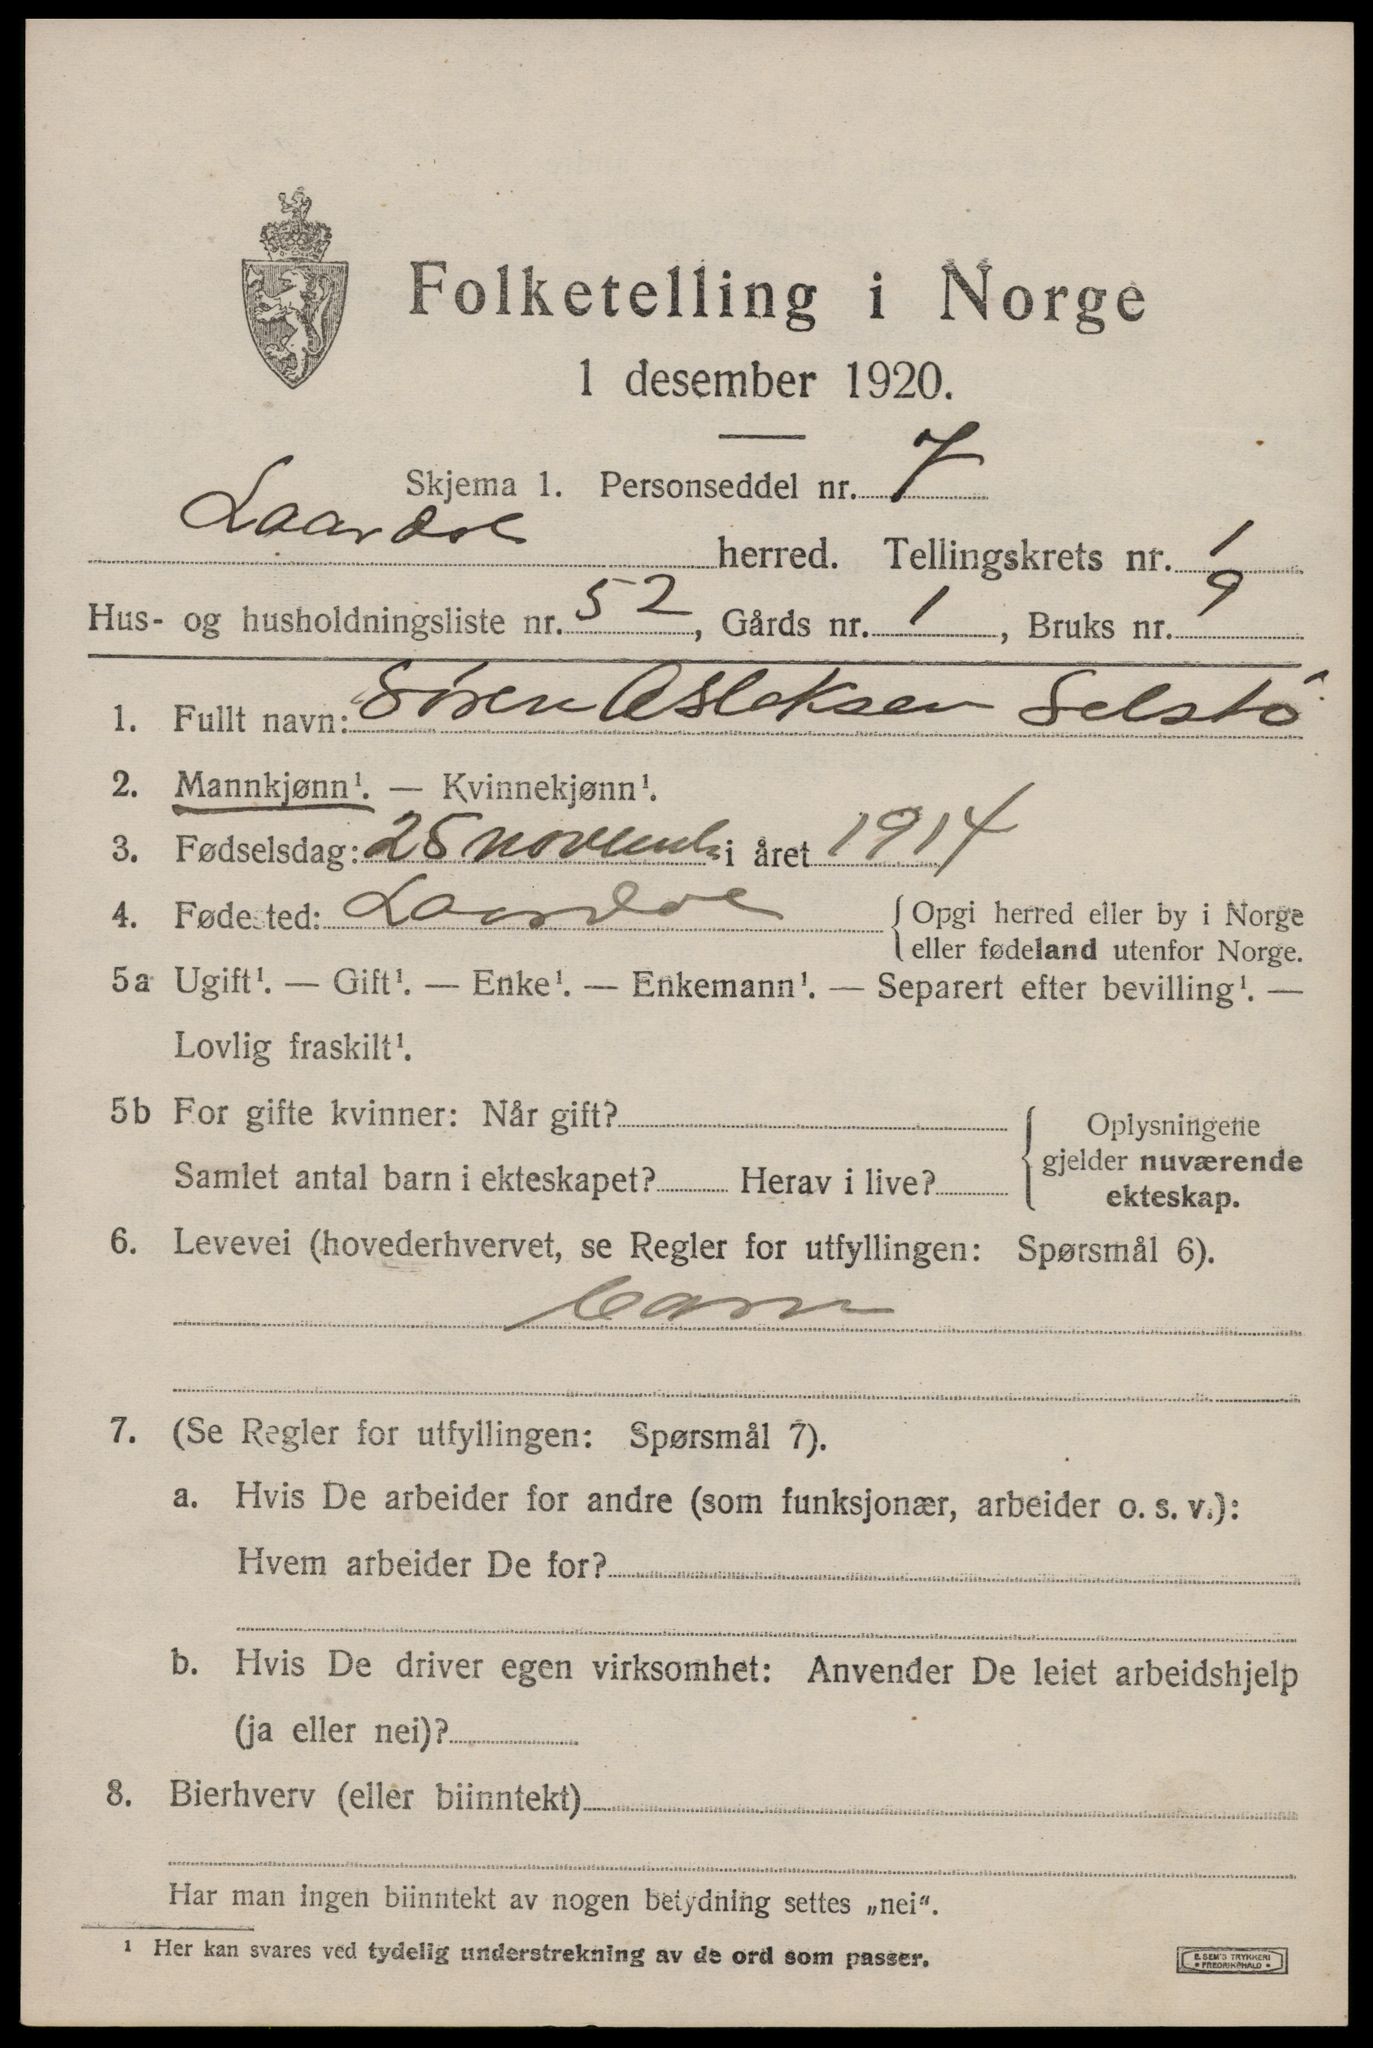 Folketelling i Norge
1 desember 1920.
Skjema 1. Personseddel nr. 7
Laardal herred. Tellingskrets nr. 1
Hus- og husholdningsliste nr. 52, Gårds nr. 1, Bruks nr. 9
1. Fullt navn: Søren Asleksen Selstø
2. Mannkjønn¹. — Kvinnekjønn¹.
3. Fødselsdag: novemb i året 1914
4. Fødested: Laardal {Opgi herred eller by i Norge
eller fødeland utenfor Norge.
5a Ugift¹. — Gift¹. — Enke¹. — Enkemann¹. — Separert efter bevilling¹. —
Lovlig fraskilt¹.
5b For gifte kvinner: Når gift? { Oplysningene
gjelder nuværende
Samlet antal barn i ekteskapet? Herav i live? ekteskap.
6. Levevei (hovederhvervet, se Regler for utfyllingen: Spørsmål 6).
barn
7. (Se Regler for utfyllingen: Spørsmål 7).
a. Hvis De arbeider for andre (som funksjonær, arbeider o. s. v.):
Hvem arbeider De for?
b. Hvis De driver egen virksomhet: Anvender De leiet arbeidshjelp
(ja eller nei)?
8. Bierhverv (eller biinntekt)
Har man ingen biinntekt av nogen betydning settes „nei“.
¹ Her kan svares ved tydelig understrekning av de ord som passer.
E. SEM'S TRYKKERI
• FREDRIKSHALD •